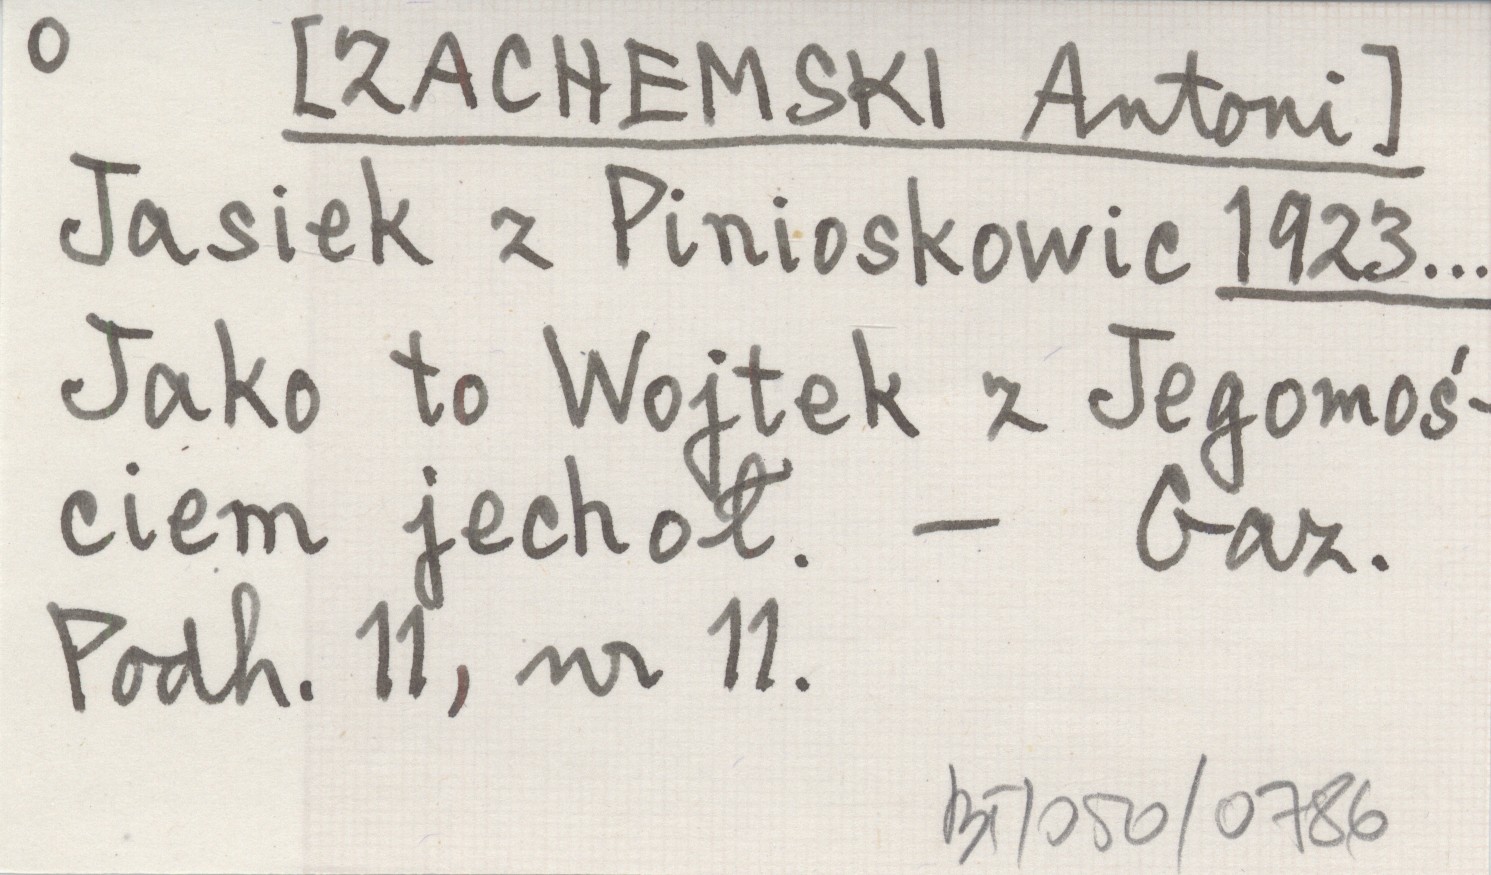 O [ZACHEMSKI Antoni]
Jasiek z Pinioskowic 1923...
Jako to Wojtek z Jegomoś-
ciem jechoł. — Gaz.
Podh. 11, nr 11.
BT/050/0786